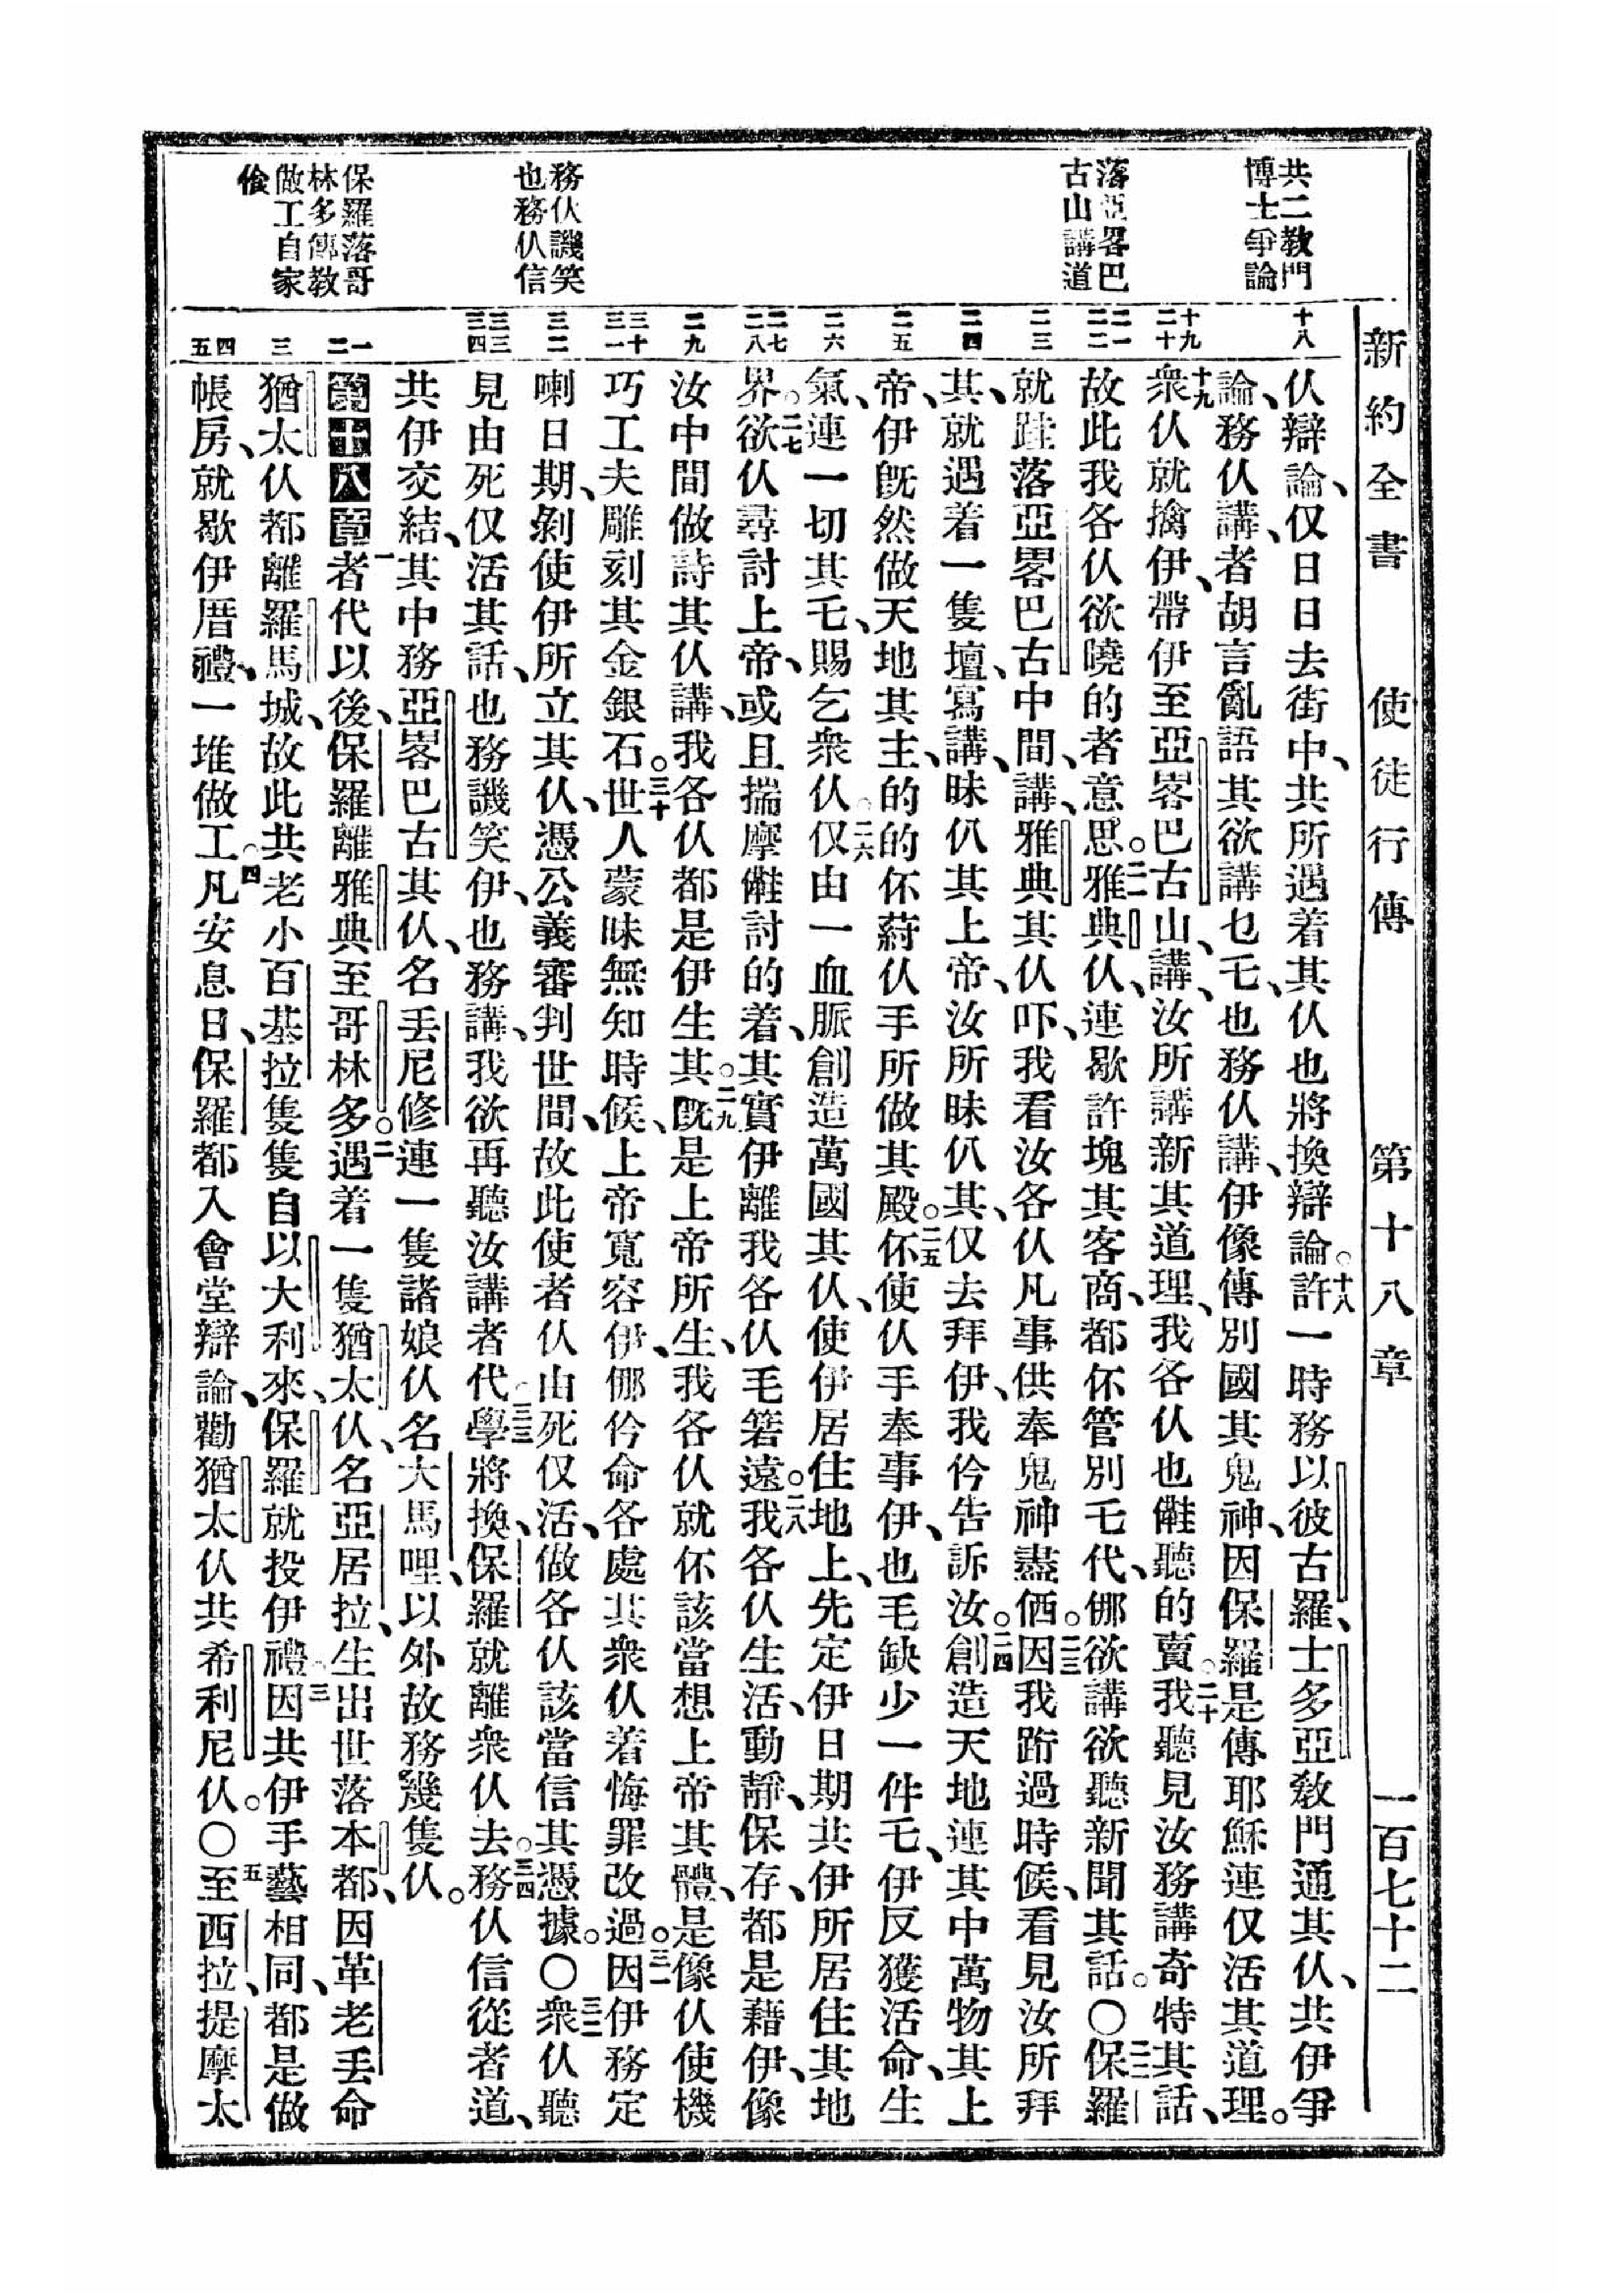 新約全書 使徒行傳 第十八章 一百七十二
共二教門
博士爭論
落亞畧巴
古山講道
務仈譏笑
也務仈信
保羅落哥
林多傳教
做工自家
儉
十八
十九
二十
二一
二二
二三
二四
二五
二六
二七
二八
二九
三十
三一
三二
三三
三四
一
二
三
四
五
仈辯論、仅日日去街中、共所遇着其仈也將換辯論。十八許一時務以彼古羅、士多亞教門通其仈、共伊爭
論、務仈講、者胡言亂語其欲講乜乇、也務仈講、伊像傳別國其鬼神、因保羅是傳耶穌連仅活其道理。
十九衆仈就擒伊、帶伊至亞畧巴古山、講、汝所講新其道理、我各仈也㒕聽的賣。二十我聽見汝務講奇特其話、
故此我各仈欲曉的者意思。二一雅典仈、連歇許塊其客商、都伓管別乇代、㑚欲講欲聽新聞其話。〇二二保羅
就跬落亞畧巴古中間、講、雅典其仈吓、我看汝各仈凡事供奉鬼神盡㑻。二三因我跻過時候、看見汝所拜
其、就遇着一隻壇、寫講、昧仈其上帝、汝所昧仈其、仅去拜伊、我仱告訴汝。二四創造天地連其中萬物其上
帝、伊既然做天地其主、的的伓蒔仈手所做其殿。二五伓使仈手奉事伊、也毛缺少一件乇、伊反獲活命、生
氣、連一切其乇、賜乞衆仈。二六仅由一血脈創造萬國其仈、使伊居住地上、先定伊日期共伊所居住其地
界。二七欲仈尋討上帝、或且揣摩㒕討的着、其實伊離我各仈毛箬遠。二八我各仈生活、動靜、保存、都是藉伊、像
汝中間做詩其仈講、我各仈都是伊生其。二九既是上帝所生、我各仈就伓該當想上帝其體、是像仈使機
巧工夫雕刻其金銀石。三十世人蒙昧無知時候、上帝寬容伊、㑚仱命各處其衆仈着悔罪改過。三一因伊務定
喇日期、剝使伊所立其仈、憑公義審判世間、故此使者仈由死仅活、做各仈該當信其憑據。〇三二衆仈聽
見由死仅活其話、也務譏笑伊、也務講、我欲再聽汝講者代。三三學將換、保羅就離衆仈去。三四務仈信從者道、
共伊交結、其中務亞畧巴古其仈、名丟尼修、連一隻諸娘仈名大馬哩、以外故務幾隻仈。
第十八章一者代以後、保羅離雅典至哥林多。二遇着一隻猶太仈、名亞居拉、生出世落本都、因革老丟命
猶太仈都離羅馬城、故此共老小百基拉隻隻自以大利來、保羅就投伊禮。三因共伊手藝相同、都是做
帳房、就歇伊厝禮、一堆做工。四凡安息日、保羅都入會堂辯論、勸猶太仈共希利尼仈。〇五至西拉、提摩太